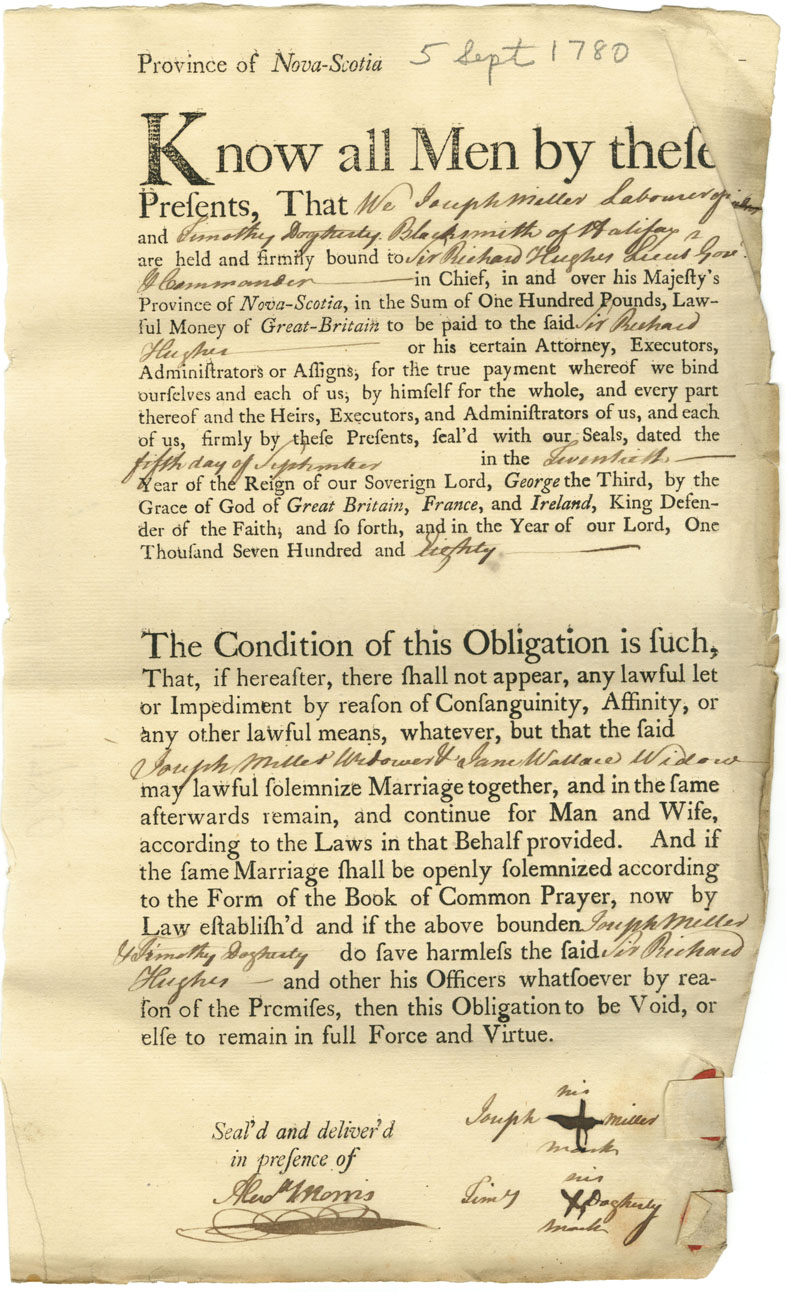 Province of Nova-Scotia 5 Sept 1780
Know all Men by theſe
Preſents, That We Joseph Miller Labourer of
and Timothy Dogherty Blacksmith of Halifax
are held and firmly bound to Sir Richard Hughes Lieut Gov.r
& Commander in Chief, in and over his Majeſty's
Province of Nova-Scotia, in the Sum of One Hundred Pounds, Law-
ful Money of Great-Britain to be paid to the ſaid Sir Richard
Hughes or his certain Attorney, Executors,
Adminiſtrators or Aſſigns; for the true payment whereof we bind
ourſelves and each of us; by himſelf for the whole, and every part
thereof and the Heirs, Executors, and Adminiſtrators of us, and each
of us, firmly by theſe Preſents, ſeal'd with our Seals, dated the
fifth day of September in the Twentieth
Year of the Reign of our Soverign Lord, George the Third, by the
Grace of God of Great Britain, France, and Ireland, King Defen-
der of the Faith; and ſo forth, and in the Year of our Lord, One
Thouſand Seven Hundred and Eighty
The Condition of this Obligation is ſuch,
That, if hereafter, there ſhall not appear, any lawful let
or Impediment by reaſon of Conſanguinity, Affinity, or
any other lawful means, whatever, but that the ſaid
Joseph Miller Widower & Jane Wallace Widow
may lawful ſolemnize Marriage together, and in the ſame
afterwards remain, and continue for Man and Wife,
according to the Laws in that Behalf provided. And if
the ſame Marriage ſhall be openly ſolemnized according
to the Form of the Book of Common Prayer, now by
Law eſtabliſh'd and if the above bounden Joseph Miller
& Timothy Dogherty do ſave harmleſs the ſaid Sir Richard
Hughes and other his Officers whatſoever by rea-
ſon of the Premiſes, then this Obligation to be Void, or
elſe to remain in full Force and Virtue.
Seal'd and deliver'd
in preſence of
Alexr Morris
his
Joseph + Miller
mark
his
Timy X Dogherty
mark